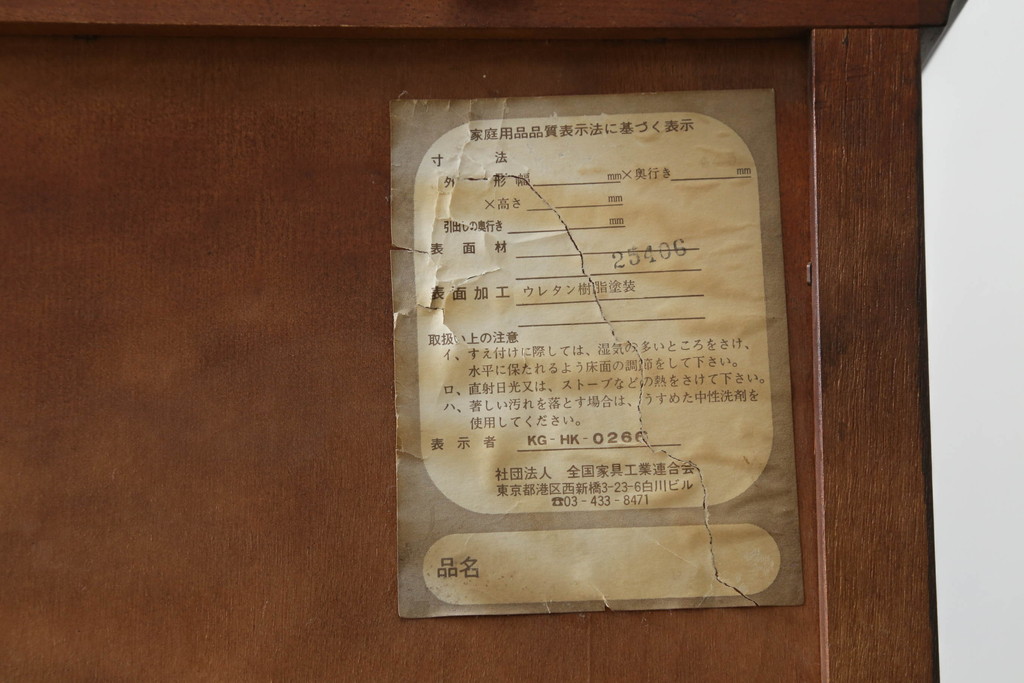 家庭用品品質表示法に基づく表示
寸法
外形 幅 mm×奥行き mm
×高さ mm
引出しの奥行き mm
表面材
25406
表面加工 ウレタン樹脂塗装
取扱い上の注意
イ、すえ付けに際しては、湿気の多いところをさけ、
水平に保たれるよう床面の調節をして下さい。
ロ、直射日光又は、ストーブなどの熱をさけて下さい。
ハ、著しい汚れを落とす場合は、うすめた中性洗剤を
使用してください。
表示者 KG-HK-0266
社団法人 全国家具工業連合会
東京都港区西新橋3-23-6白川ビル
☎03-433-8471
品名